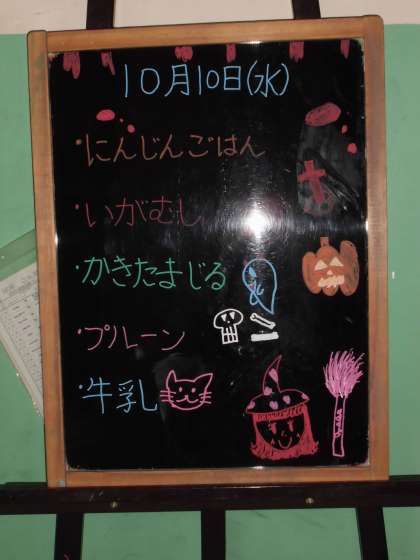 10月10日(水)
・にんじんごはん
・いがむし
・かきたまじる
・プルーン
・牛乳